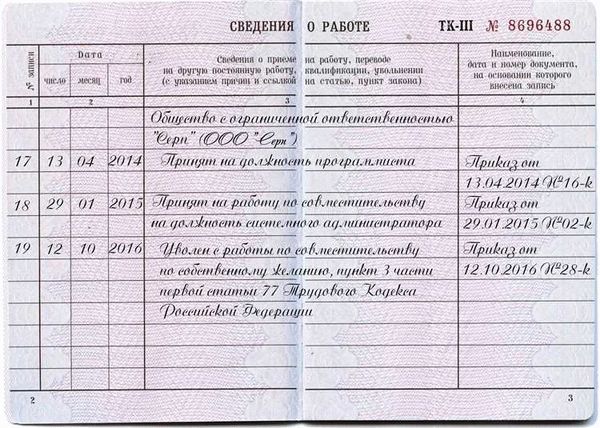 СВЕДЕНИЯ О РАБОТЕ ТК-III № 8696488
№ записи
Дата
Сведения о приеме на работу, переводе
на другую постоянную работу, квалификации, увольнении
(с указанием причин и ссылкой на статью, пункт закона)
Наименование,
дата и номер документа,
на основании которого
внесена запись
число месяц год
1 2 3 4
Общество с ограниченной ответственностью
"Серп" (ООО "Серп")
17 13 04 2014 Принят на должность программиста Приказ от
13.04.2014 №16-к
18 29 01 2015 Принят на работу по совместительству Приказ от
на должность системного администратора 29.01.2015 №02-к
19 12 10 2016 Уволен с работы по совместительству Приказ от
по собственному желанию, пункт 3 части 12.10.2016 №28-к
первой статьи 77 Трудового Кодекса
Российской Федерации
2 3